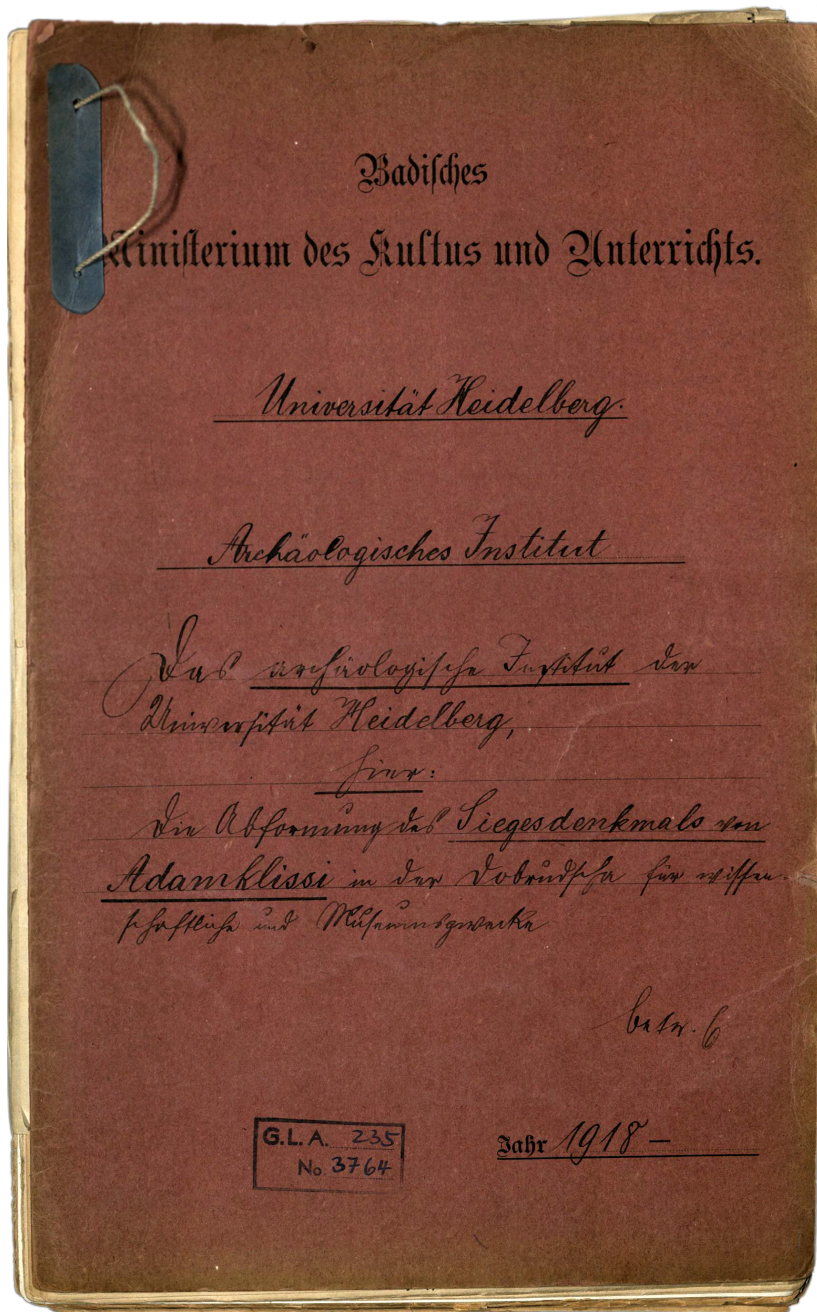 Badisches
Ministerium des Kultus und Unterrichts.
Universität Heidelberg.
Archäologisches Institut
Das archäologische Institut der
Universität Heidelberg,
hier:
Die Abformung des Siegesdenkmals von
Adamklissi in der Dobrudscha für wissen-
schaftliche und Museumszwecke
betr.
G.L.A. 235
No. 3764
Jahr 1918 –